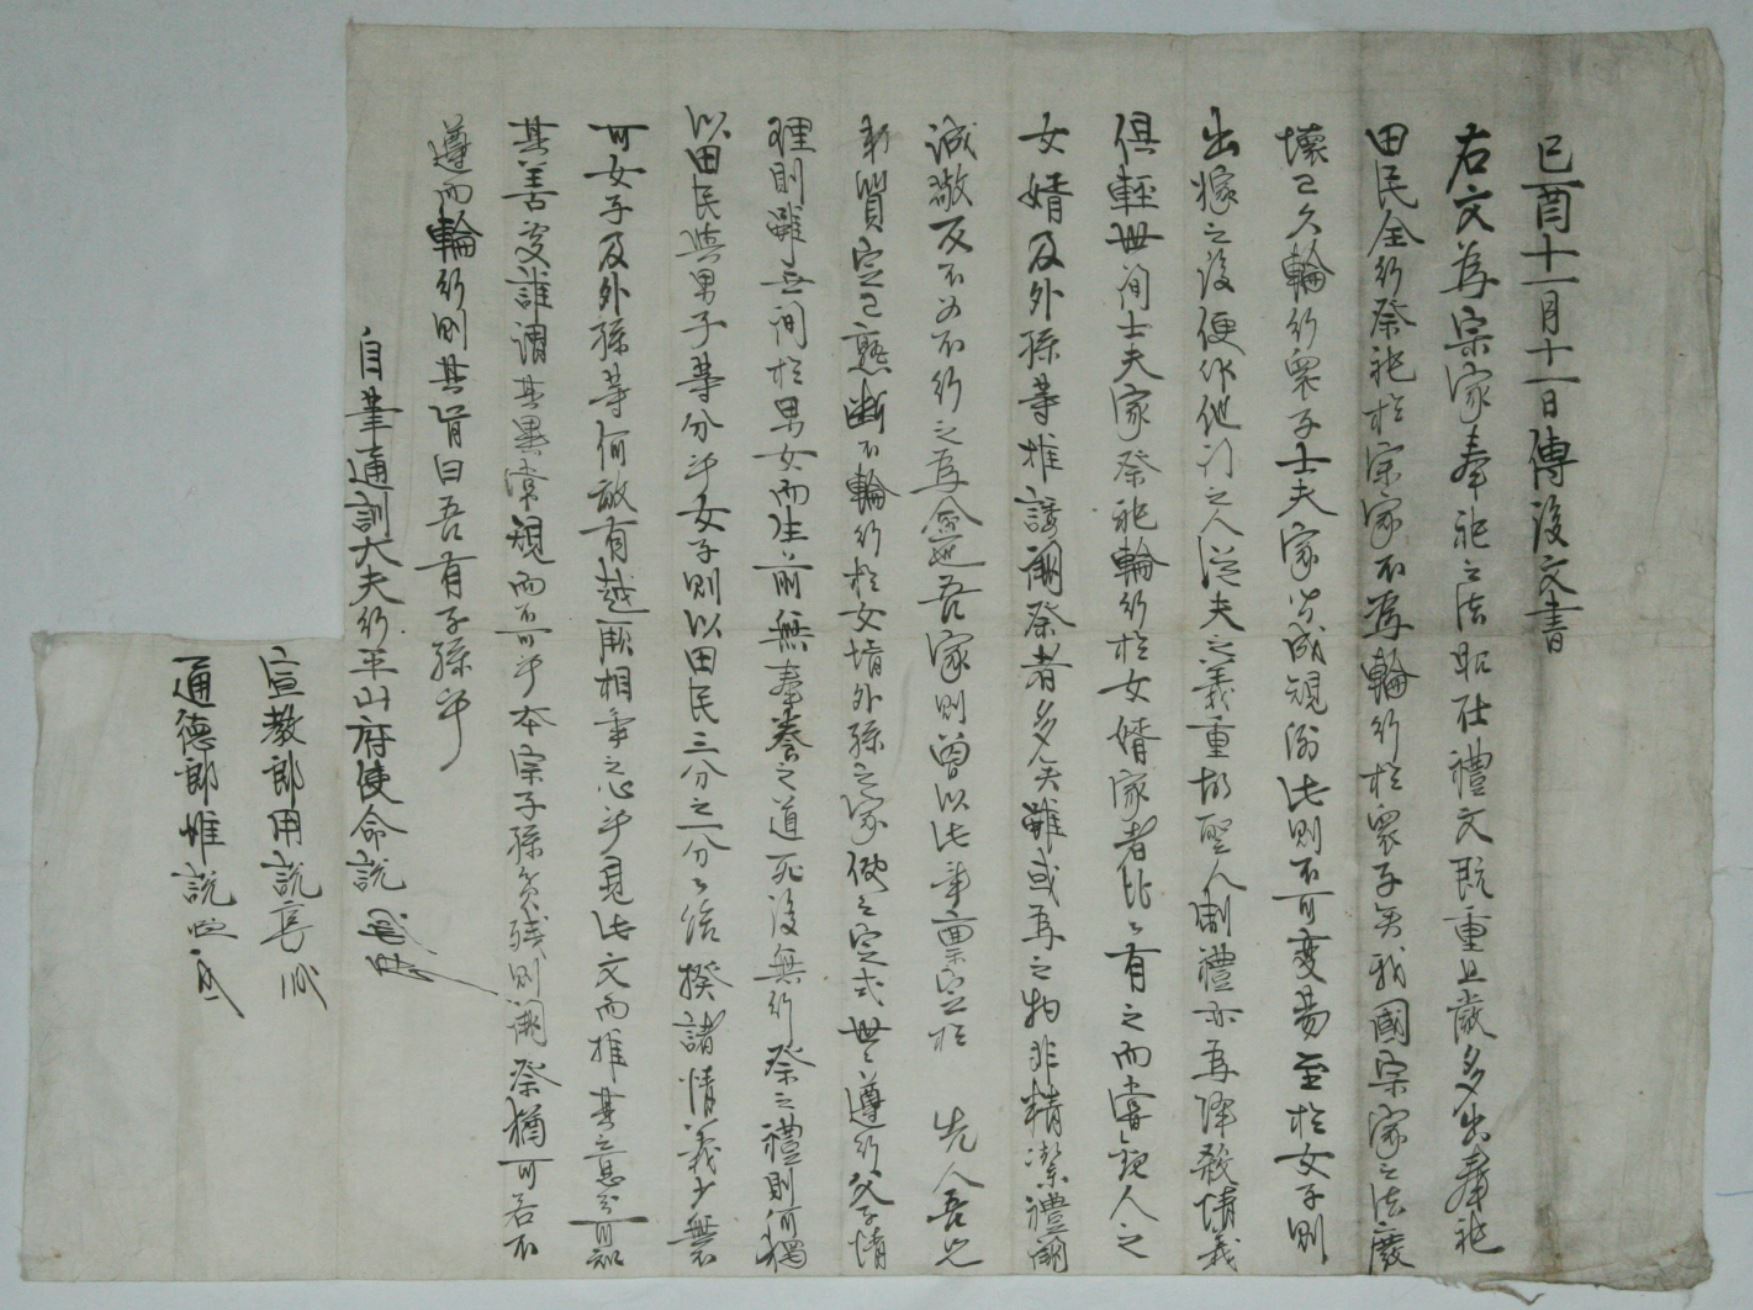 己酉十一月十一日傳後文書
右文爲宗家奉祀之法昭在禮文旣重且嚴多出奉祀
田民全行祭祀於宗家不爲輪行於衆子矣我國宗家之法廢
壞已久輪行衆子士夫家皆成規例此則不可變易至於女子則
出嫁之後便作他門之人從夫之義重故聖人制禮亦爲降殺情義
俱輕世間士夫家祭祀輪行於女婿家者比比有之而嘗觀人之
女婿及外孫等推諉闕祭者多矣雖或爲之物非精潔禮闕
誠敬反不如不行之爲愈也吾家則曾以此事稟定於 先人吾兄
弟質定已熟斷不輪行於女婿外孫之家使之定式世世遵行父子情
理則雖無間於男女而生前無奉養之道死後無行祭之禮則何獨
以田民與男子等分乎女子則以田民三分之一分分給揆諸情義少無不
可女子及外孫等何敢有越厥相爭之心乎見此文而推其意則可知
其善處誰謂其異常規而不可乎本宗子孫貧殘則闕祭猶可若不
遵而輪行則其肯曰吾有子孫乎
自筆通訓大夫行平山府使命說
宣教郎用說
通德郎惟說